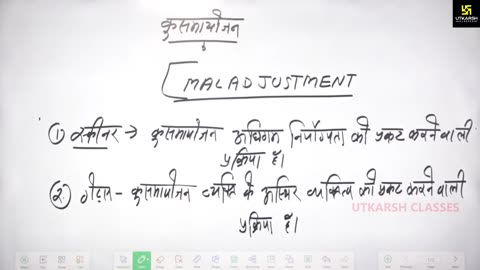 कुसमायोजन
UTKARSH CLASSES
MALADJUSTMENT
① स्कीनर → कुसमायोजन अधिगम निर्योग्यता को प्रकट करने वाली
प्रक्रिया है।
②. गेट्स - कुसमायोजन व्यक्ति के अस्थिर व्यक्तित्व को प्रकट करने वाली
UTKARSH CLASSES
प्रक्रिया है।